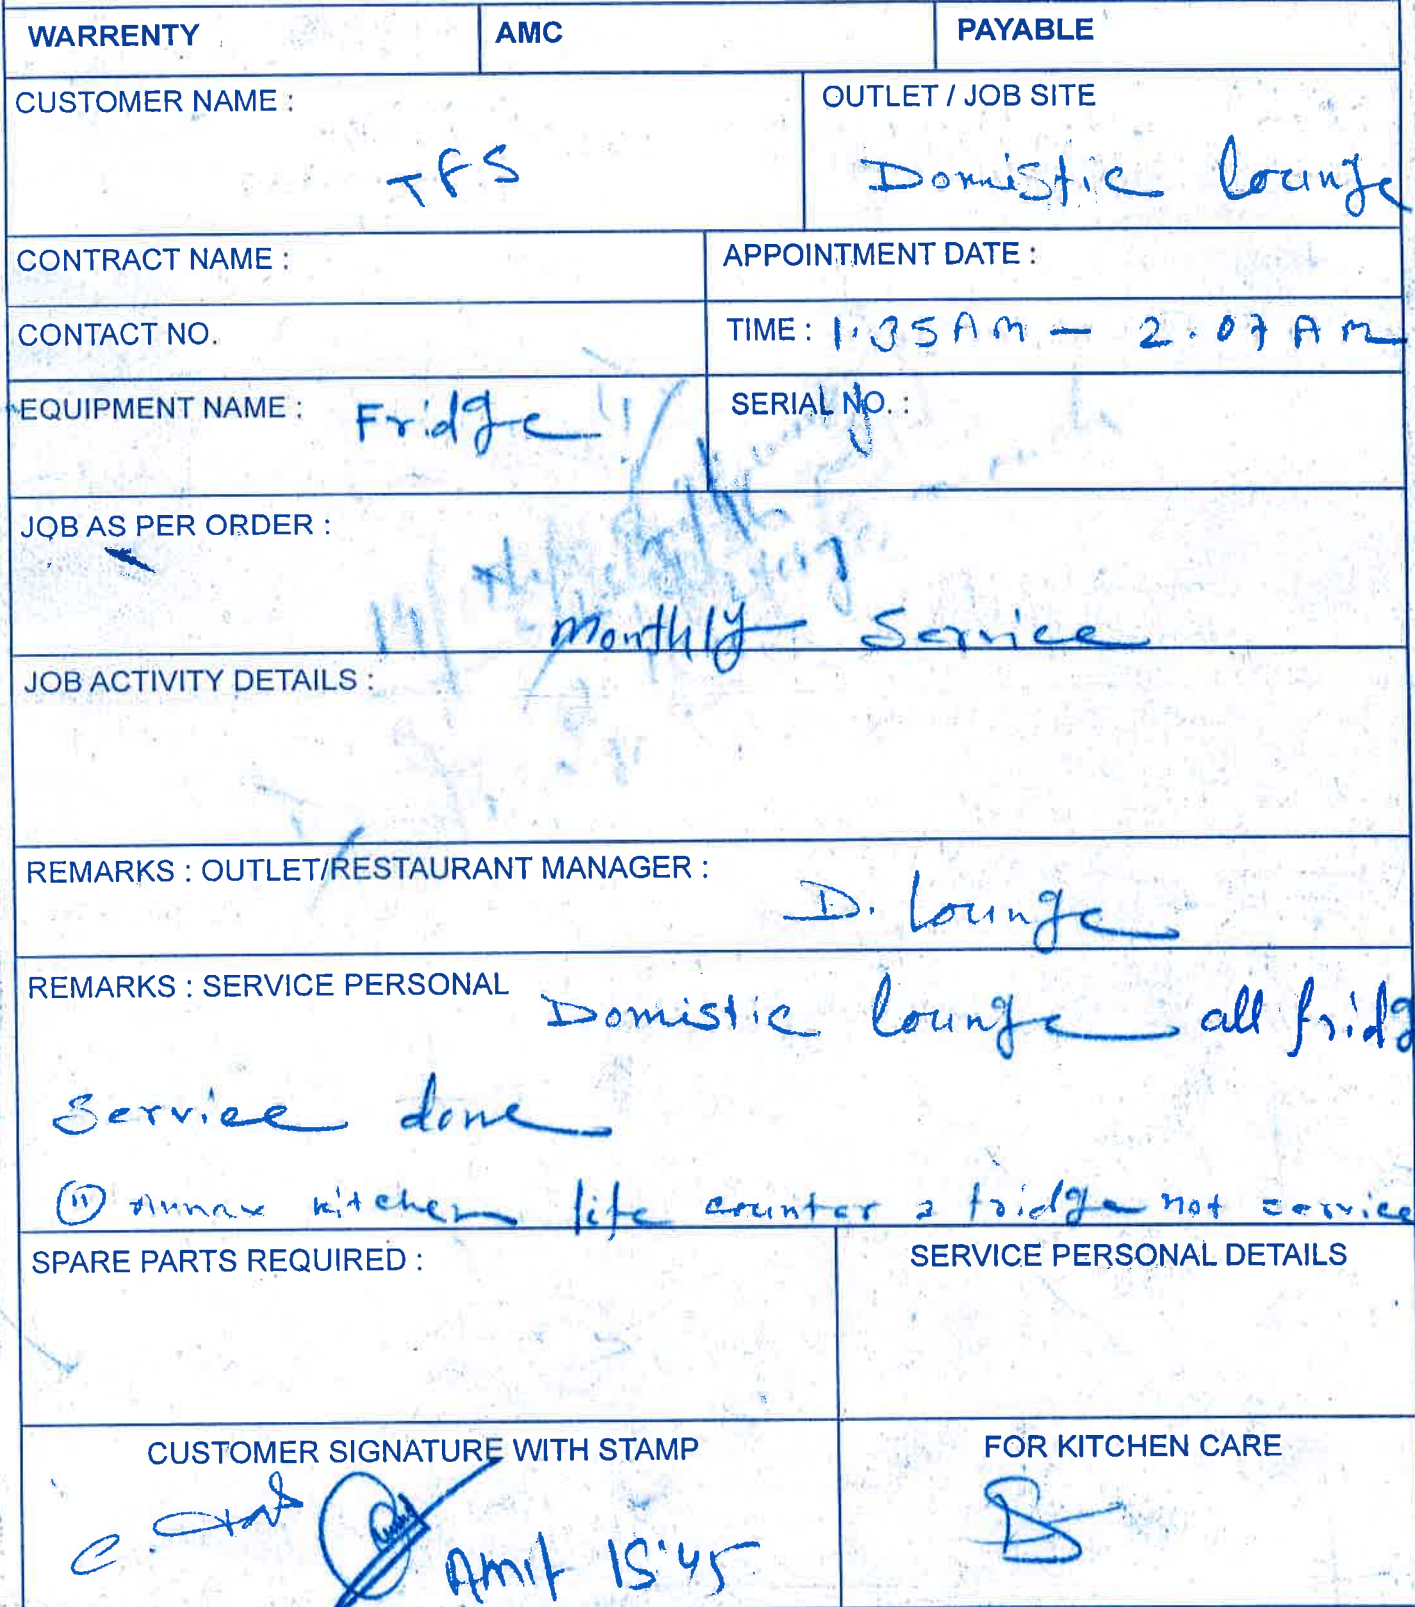 WARRENTY AMC PAYABLE
CUSTOMER NAME : OUTLET / JOB SITE
TFS Domistic lounge
CONTRACT NAME : APPOINTMENT DATE :
CONTACT NO. TIME : 1.35 AM - 2.07 AM
EQUIPMENT NAME : Fridge SERIAL NO. :
JOB AS PER ORDER :
Monthly Service
JOB ACTIVITY DETAILS :
REMARKS : OUTLET/RESTAURANT MANAGER :
D. lounge
REMARKS : SERVICE PERSONAL Domistic lounge all fridg
Service done
(11) Annax kitchen life counter 2 fridge not service
SPARE PARTS REQUIRED : SERVICE PERSONAL DETAILS
CUSTOMER SIGNATURE WITH STAMP FOR KITCHEN CARE
Amit 15:45